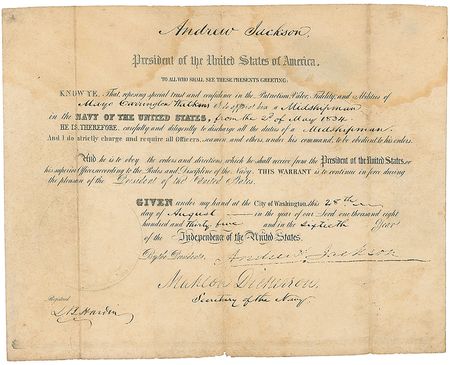 Andrew Jackson,
President of the United States of America,
TO ALL WHO SHALL SEE THESE PRESENTS GREETING:
KNOW YE, That reposing special trust and confidence in the Patriotism, Valor, Fidelity, and Abilities of
Mayo Carrington Watkins I do appoint him a Midshipman
in the NAVY OF THE UNITED STATES, from the 2d of May 1834.
HE IS, THEREFORE, carefully and diligently to discharge all the duties of a Midshipman,
And I do strictly charge and require all Officers, seamen and others, under his command, to be obedient to his orders.
And he is to obey the orders and directions which he shall receive from the President of the United States, or
his superior Officers, according to the Rules and Discipline of the Navy. THIS WARRANT is to continue in force during
the pleasure of the President of the United States.
GIVEN under my hand at the City of Washington, this 28th
day of August in the year of our Lord one thousand eight
hundred and thirty five and in the sixtieth Year
of the Independence of the United States.
By the President, Andrew Jackson
Mahlon Dickerson,
Secretary of the Navy.
Registered
Hardin